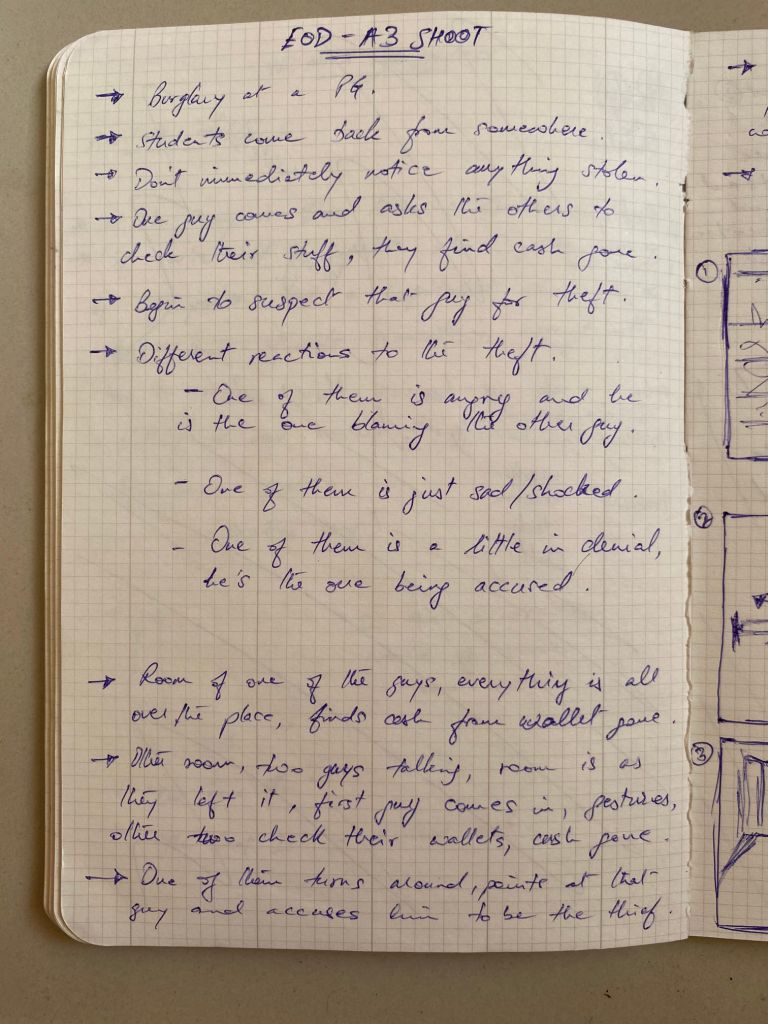 EOD - A3 SHOOT
→ Burglary at a PG.
→ Students come back from somewhere.
→ Don't immediately notice anything stolen.
→ One guy comes and asks the others to
check their stuff, they find cash gone.
→ Begin to suspect that guy for theft.
→ Different reactions to the theft.
- One of them is angry and he
is the one blaming the other guy.
- One of them is just sad/shocked.
- One of them is a little in denial,
he's the one being accused.
→ Room of one of the guys, everything is all
over the place, finds cash from wallet gone.
→ Other room, two guys talking, room is as
they left it, first guy comes in, gestures,
other two check their wallets, cash gone.
→ One of them turns around, points at that
guy and accuses him to be the thief.
→
→
1
2
3